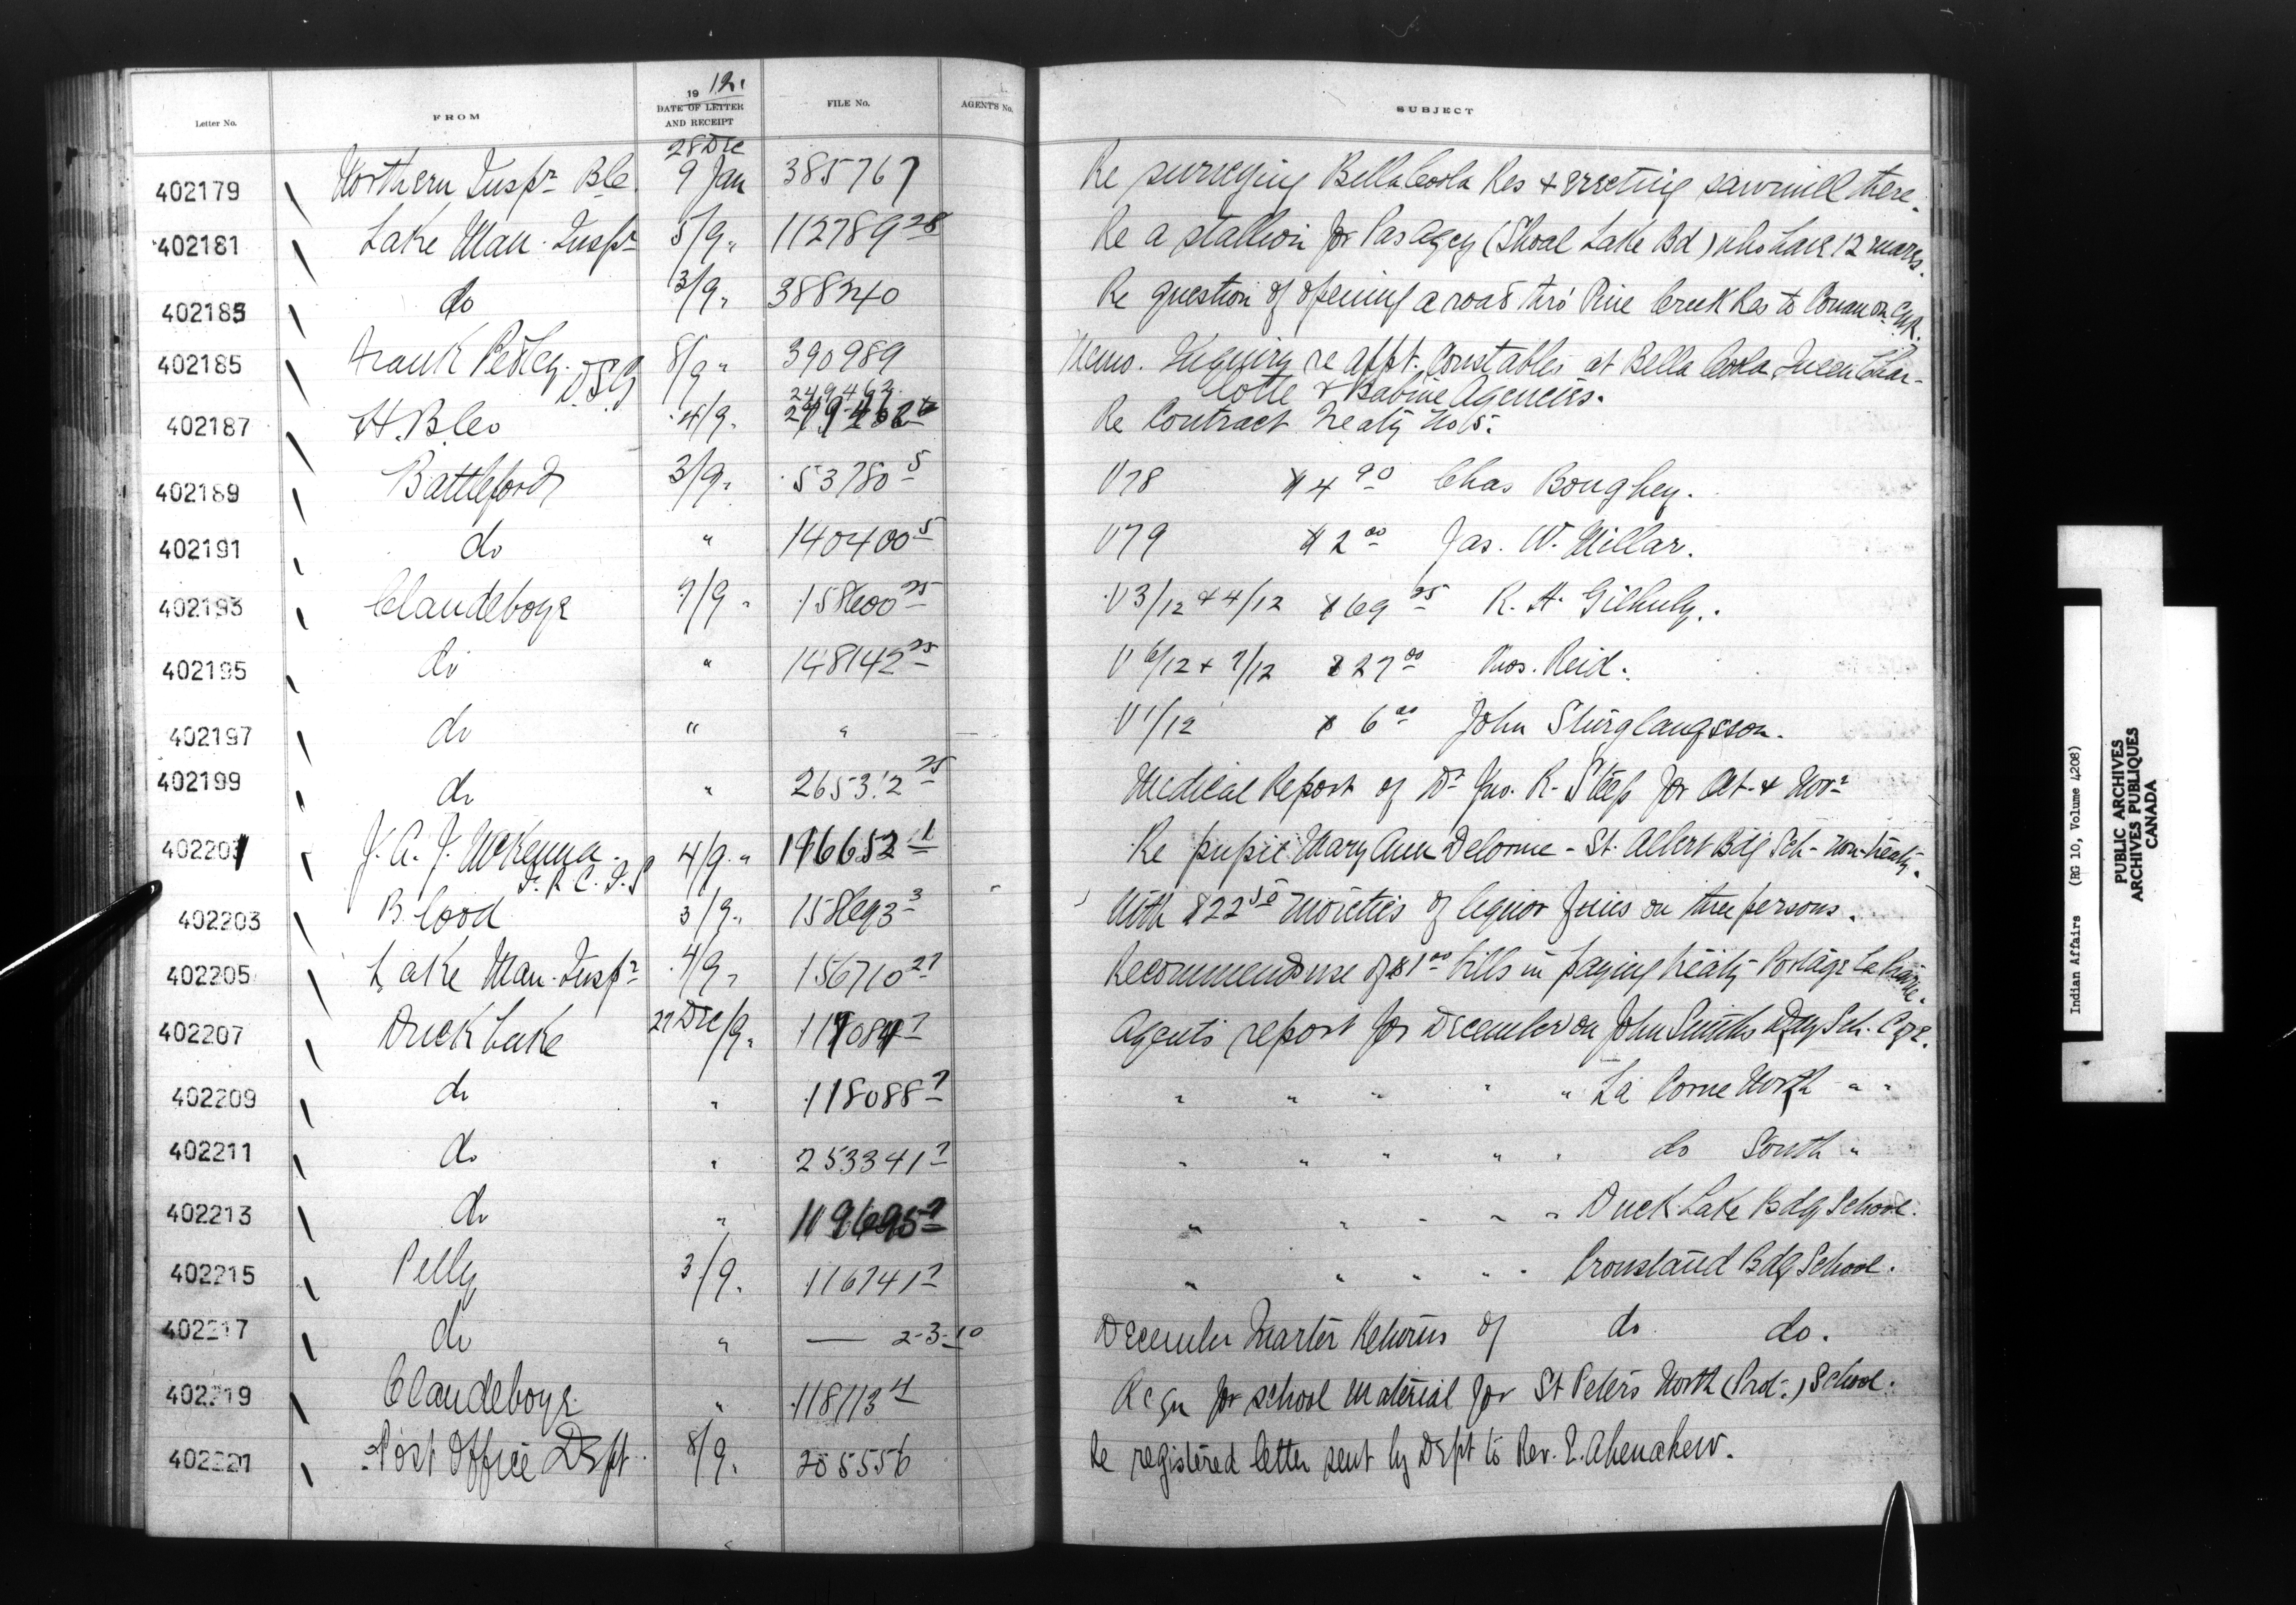 Letter No. FROM 1912. DATE OF LETTER AND RECEIPT FILE No. AGENT'S No. SUBJECT
28 Dec
402179 Northern Inspr B.C. 9 Jan 385767 Re surveying Bella Coola Res & erecting sawmill there.
402181 Lake Man. Inspr 5/9 " 112789 28 Re a stallion for Pas Agcy (Shoal Lake Bd) who have 12 mares.
402183 do 3/9 " 388240 Re question of opening a road thro' Pine Creek Res to Cowan on CNR.
402185 Frank Pedley. DSG 8/9 " 390989 Memo. Inquiry re appt. Constables at Bella Coola, Queen Char-
lotte & Babine Agencies.
249463
402187 H. B. Co 4/9 " Re Contract Treaty No 5.
402189 Battleford 3/9 " 53780 5 V78 $4 90 Chas Boughey.
402191 do " 140400 5 V79 $2 00 Jas. W. Millar.
402193 Clandeboye 7/9 " 158600 25 V3/12 & 4/12 $69 25 R. H. Gilhuly.
402195 do " 148142 25 V 6/12 & 7/12 $27 00 Thos. Reid.
402197 do " " V 1/12 $6 00 John Sturglaugsson.
402199 do " 265312 25 Medical Report of Dr Jno. R. Steep for Oct. & Novr
402201 J. A. J. McKenna. I. R. C. I. S 4/9 " 196652 1 Re pupil Mary Ann Delorme - St. Albert Bdg Sch - non-treaty.
402203 Blood 3/9 " 158693 3 " With $22 50 moieties of liquor fines on three persons.
402205 Lake Man. Inspr 4/9 " 156710 27 Recommends use of $1 00 bills in paying treaty Portage La Prairie.
402207 Duck Lake 27 Dec/9 " Agents report for December on John Smiths Day Sch. C of E.
402209 do " 118088 7 " " " " " La Corne North " "
402211 do " 253341 7 " " " " " do South "
402213 do " " " " " " Duck Lake Bdg School.
402215 Pelly 3/9 " 116741 7 " " " " " Crowstand Bdg School.
402217 do " — 2-3-10 December Quarter Returns of do do.
402219 Clandeboye " 118113 4 Reqn for school material for St Peter's North (Prot.) School.
402221 Post Office Dept 8/9 " 205556 Re registered letter sent by Dept to Rev. E. Ahenakew.
Indian Affairs (RG 10, Volume 4208)
PUBLIC ARCHIVES
ARCHIVES PUBLIQUES
CANADA